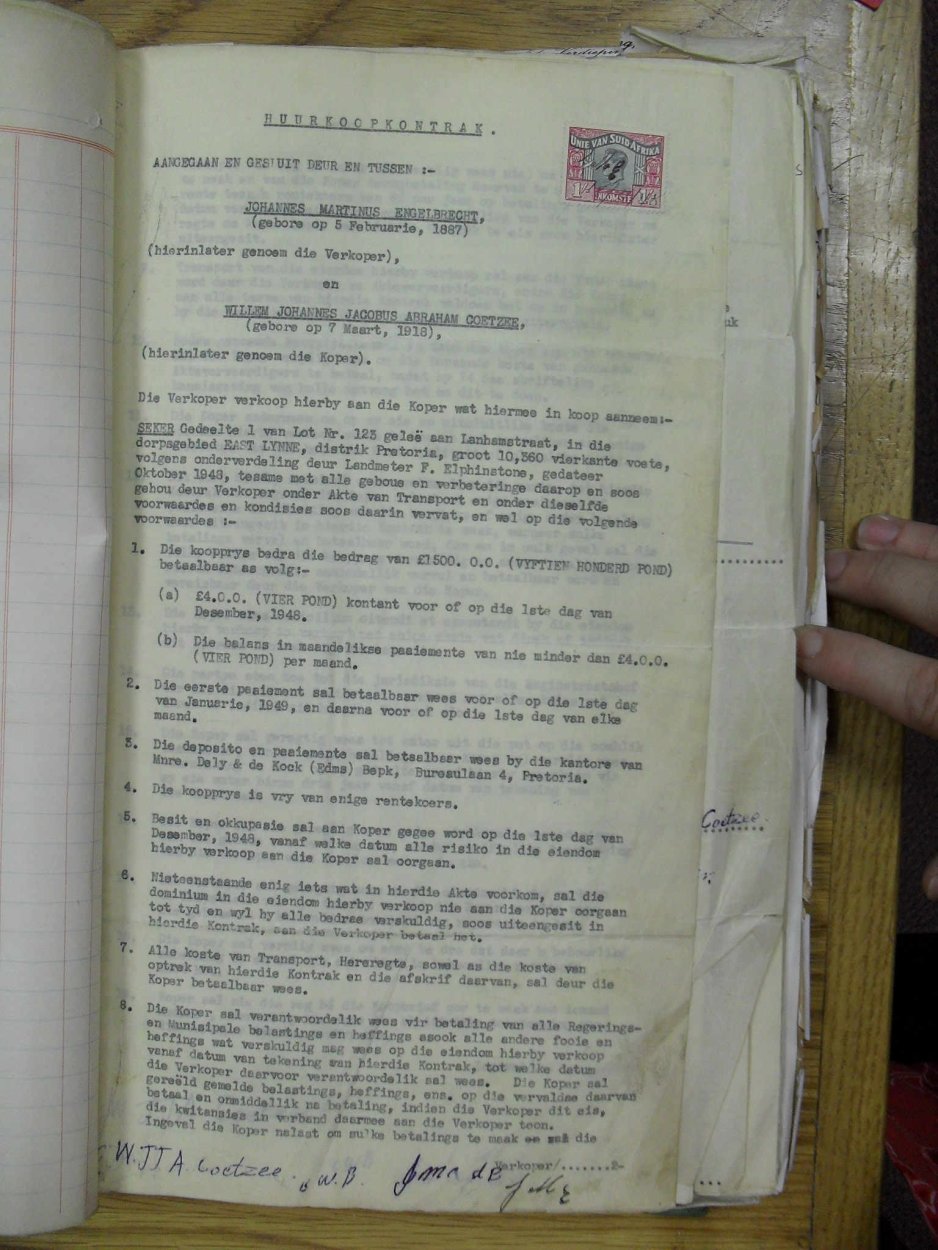 HUURKOOPKONTRAK.
UNIE VAN SUID AFRIKA
1/- INKOMSTE 1/-
AANGEGAAN EN GESLUIT DEUR EN TUSSEN :-
JOHANNES MARTINUS ENGELBRECHT,
(gebore op 5 Februarie, 1887)
(hierinlater genoem die Verkoper),
en
WILLEM JOHANNES JACOBUS ABRAHAM COETZEE,
(gebore op 7 Maart, 1918),
(hierinlater genoem die Koper).
Die Verkoper verkoop hierby aan die Koper wat hiermee in koop aanneem:-
SEKER Gedeelte 1 van Lot Nr. 123 geleë aan Lanhamstraat, in die
dorpsgebied EAST LYNNE, distrik Pretoria, groot 10,360 vierkante voete,
volgens onderverdeling deur Landmeter F. Elphinstone, gedateer
Oktober 1948, tesame met alle geboue en verbeteringe daarop en soos
gehou deur Verkoper onder Akte van Transport en onder dieselfde
voorwaardes en kondisies soos daarin vervat, en wel op die volgende
voorwaardes :-
1. Die koopprys bedra die bedrag van £1500. 0.0. (VYFTIEN HONDERD POND)
betaalbaar as volg:-
(a) £4.0.0. (VIER POND) kontant voor of op die 1ste dag van
Desember, 1948.
(b) Die balans in maandelikse paaiemente van nie minder dan £4.0.0.
(VIER POND) per maand.
2. Die eerste paaiement sal betaalbaar wees voor of op die 1ste dag
van Januarie, 1949, en daarna voor of op die 1ste dag van elke
maand.
3. Die deposito en paaiemente sal betaalbaar wees by die kantore van
Mnre. Dely & de Kock (Edms) Bepk, Bureaulaan 4, Pretoria.
4. Die koopprys is vry van enige rentekoers.
5. Besit en okkupasie sal aan Koper gegee word op die 1ste dag van
Desember, 1948, vanaf welke datum alle risiko in die eiendom
hierby verkoop aan die Koper sal oorgaan.
6. Nieteenstaande enig iets wat in hierdie Akte voorkom, sal die
dominium in die eiendom hierby verkoop nie aan die Koper oorgaan
tot tyd en wyl hy alle bedrae verskuldig, soos uiteengesit in
hierdie Kontrak, aan die Verkoper betaal het.
7. Alle koste van Transport, Hereregte, sowel as die koste van
optrek van hierdie Kontrak en die afskrif daarvan, sal deur die
Koper betaalbaar wees.
8. Die Koper sal verantwoordelik wees vir betaling van alle Regerings-
en Munisipale belastings en heffings asook alle andere fooie en
heffings wat verskuldig mag wees op die eiendom hierby verkoop
vanaf datum van tekening van hierdie Kontrak, tot welke datum
die Verkoper daarvoor verantwoordelik sal wees. Die Koper sal
gereëld gemelde belastings, heffings, ens. op die vervaldae daarvan
betaal en onmiddellik na betaling, indien die Verkoper dit eis,
die kwitansies in verband daarmee aan die Verkoper toon.
Ingeval die Koper nalaat om sulke betalings te maak en sal die
Verkoper/.......2-
W.J J A. Coetzee. W.B.
Coetzee.